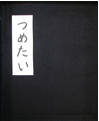 つめたい